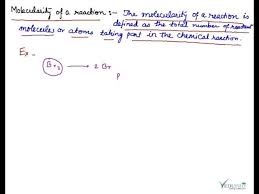 Molecularity of a reaction :- The molecularity of a reaction is
defined as the total number of reactant
molecules or atoms taking part in the chemical reaction.
Ex -
Br₂ → 2 Br
p